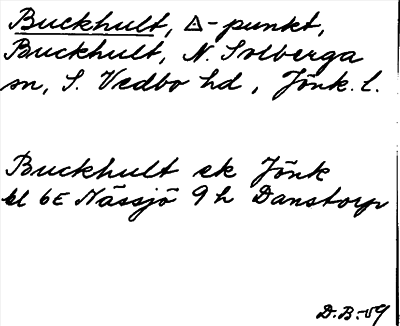 Buckhult, △-punkt,
Buckhult, N. Solberga
sn, S. Vedbo hd, Jönk. l.
Buckhult ek Jönk
bl 6E Nässjö 9 h Danstorp
D.B.-59